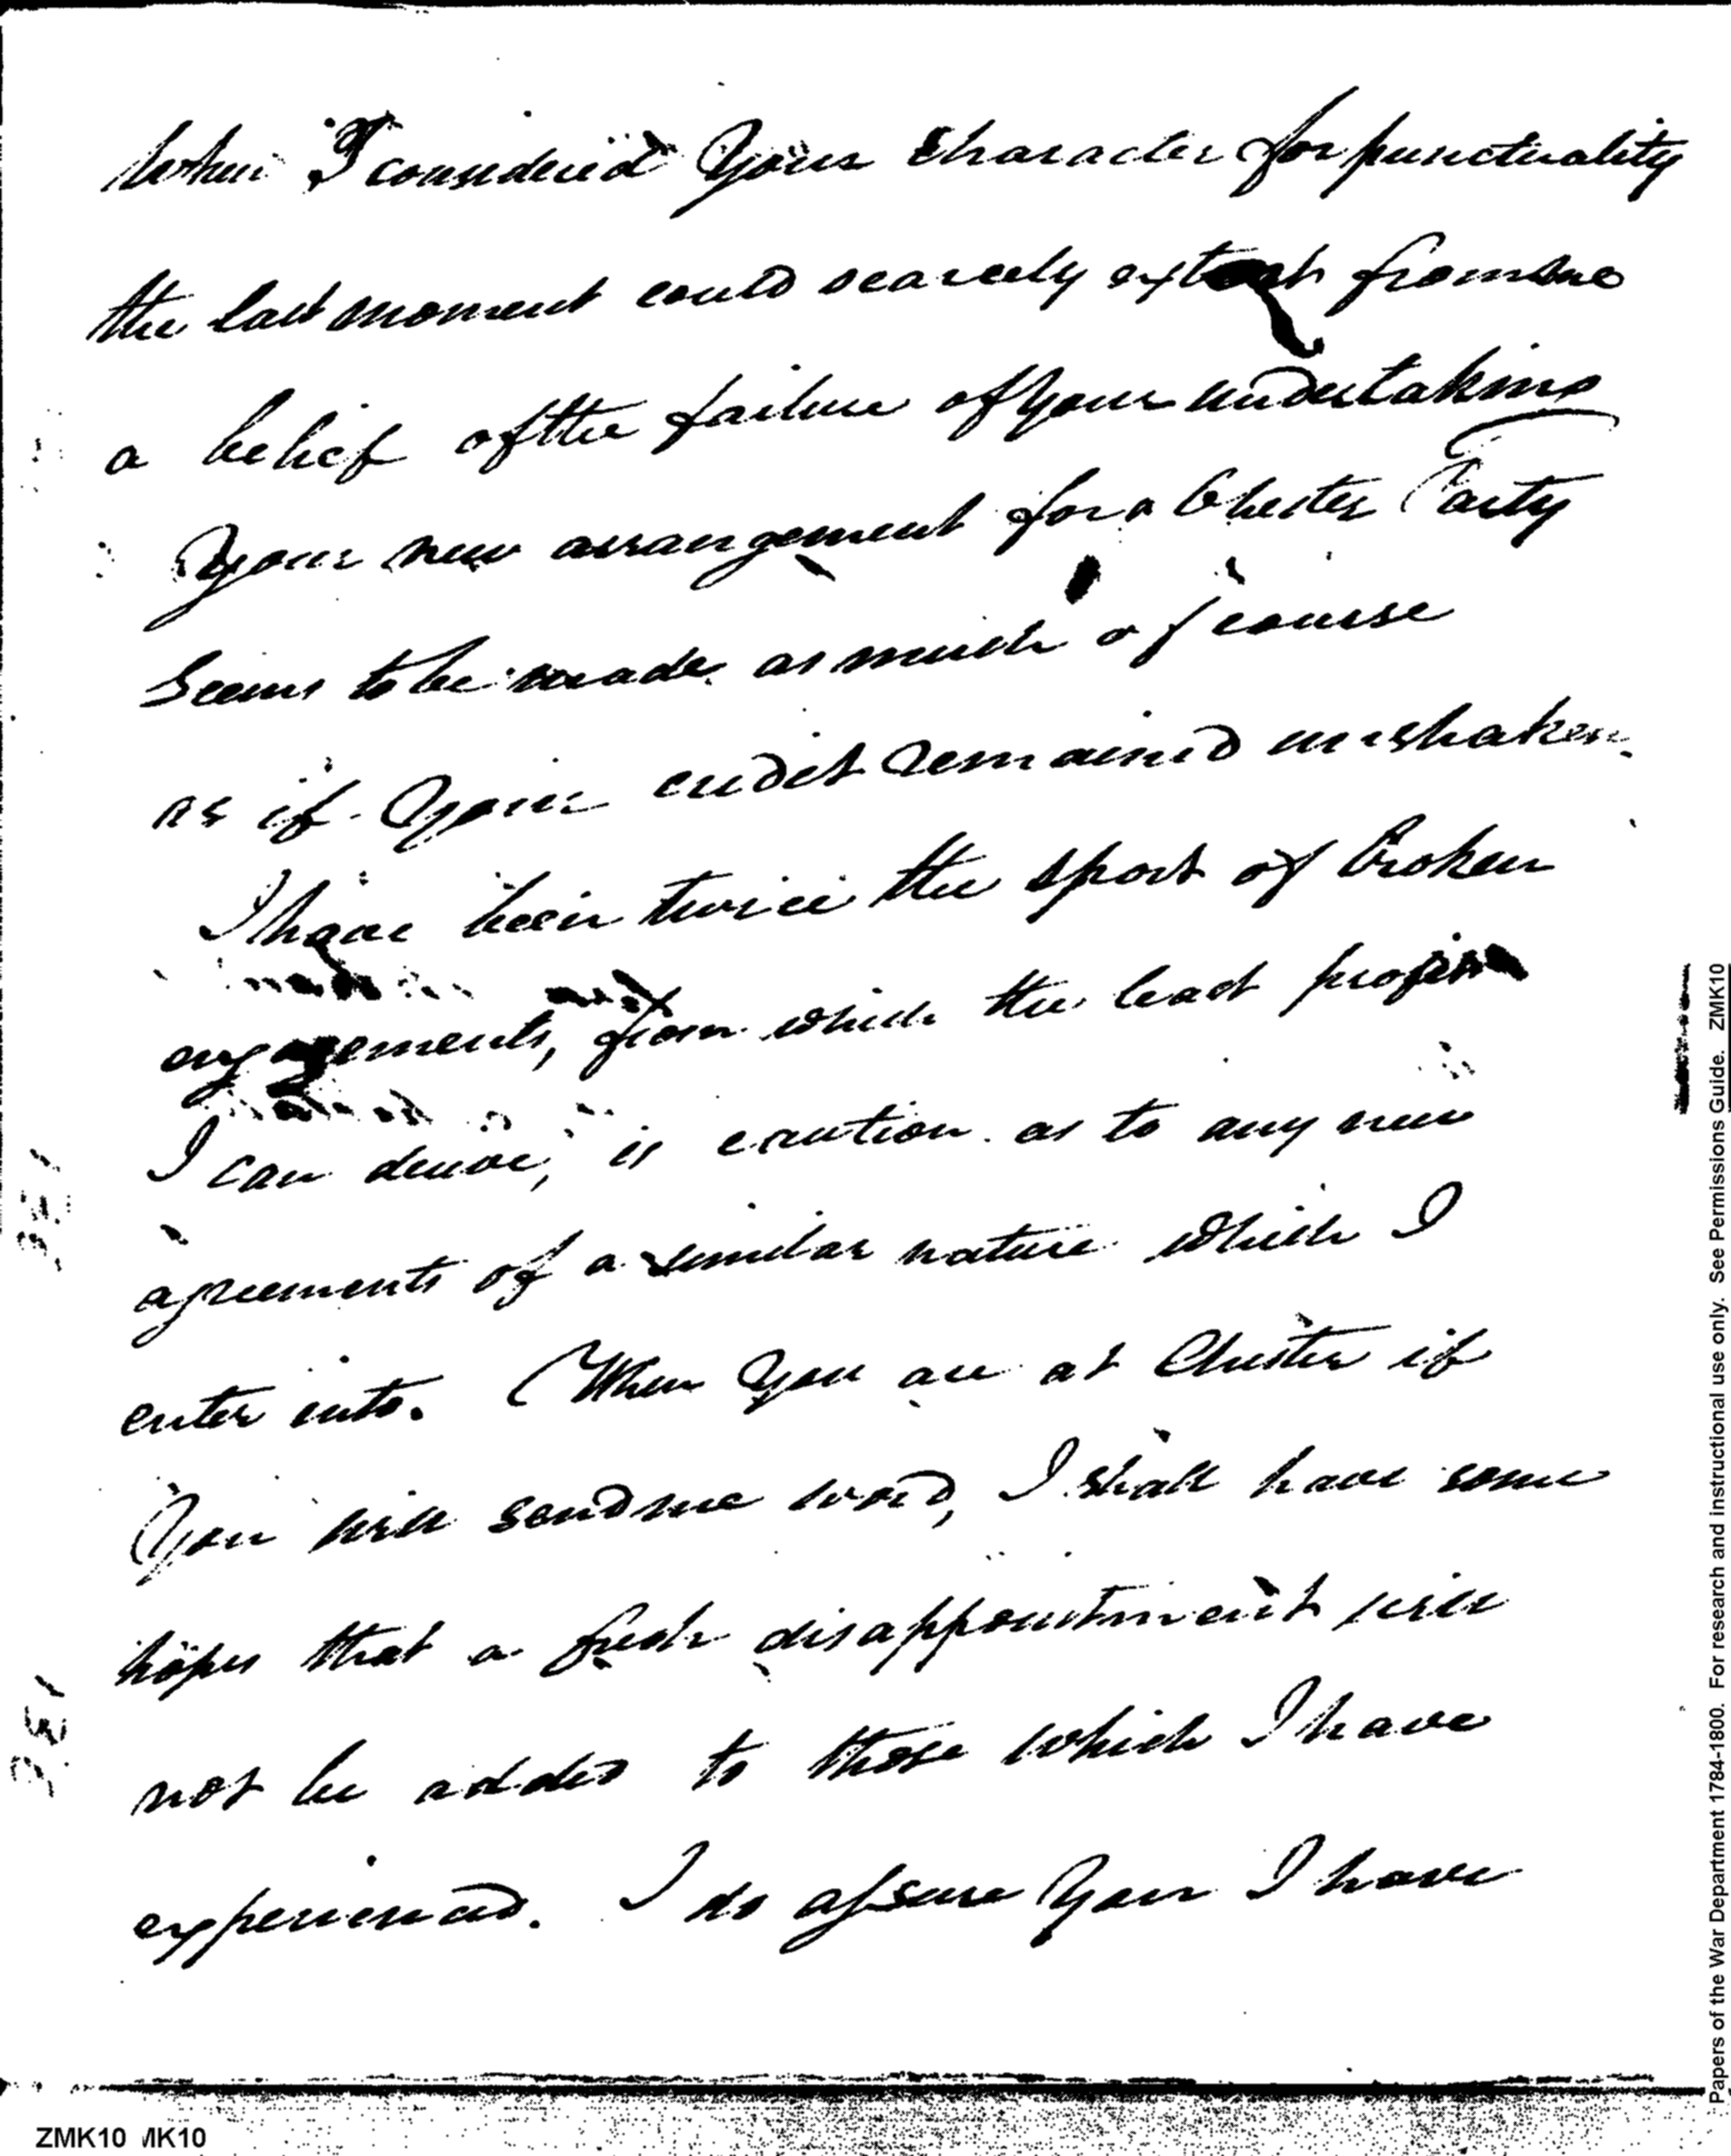 When I considered Your Character for punctuality
the last moment could scarcely extort from me
a belief of the failure of your undertaking
Your new arrangement for a Chester Party
Seems to be made as much of course
as if Your credit remained unshaken.
I have been twice the sport of broken
engagements, from which the least profit
I can derive, is caution as to any new
agreements of a similar nature which I
enter into. When You are at Chester if
You will send me word, I shall have some
hopes that a fresh disappointment will
not be added to those which I have
experienced. I do assure You I have
Papers of the War Department 1784-1800. For research and instructional use only. See Permissions Guide. ZMK10
ZMK10 MK10